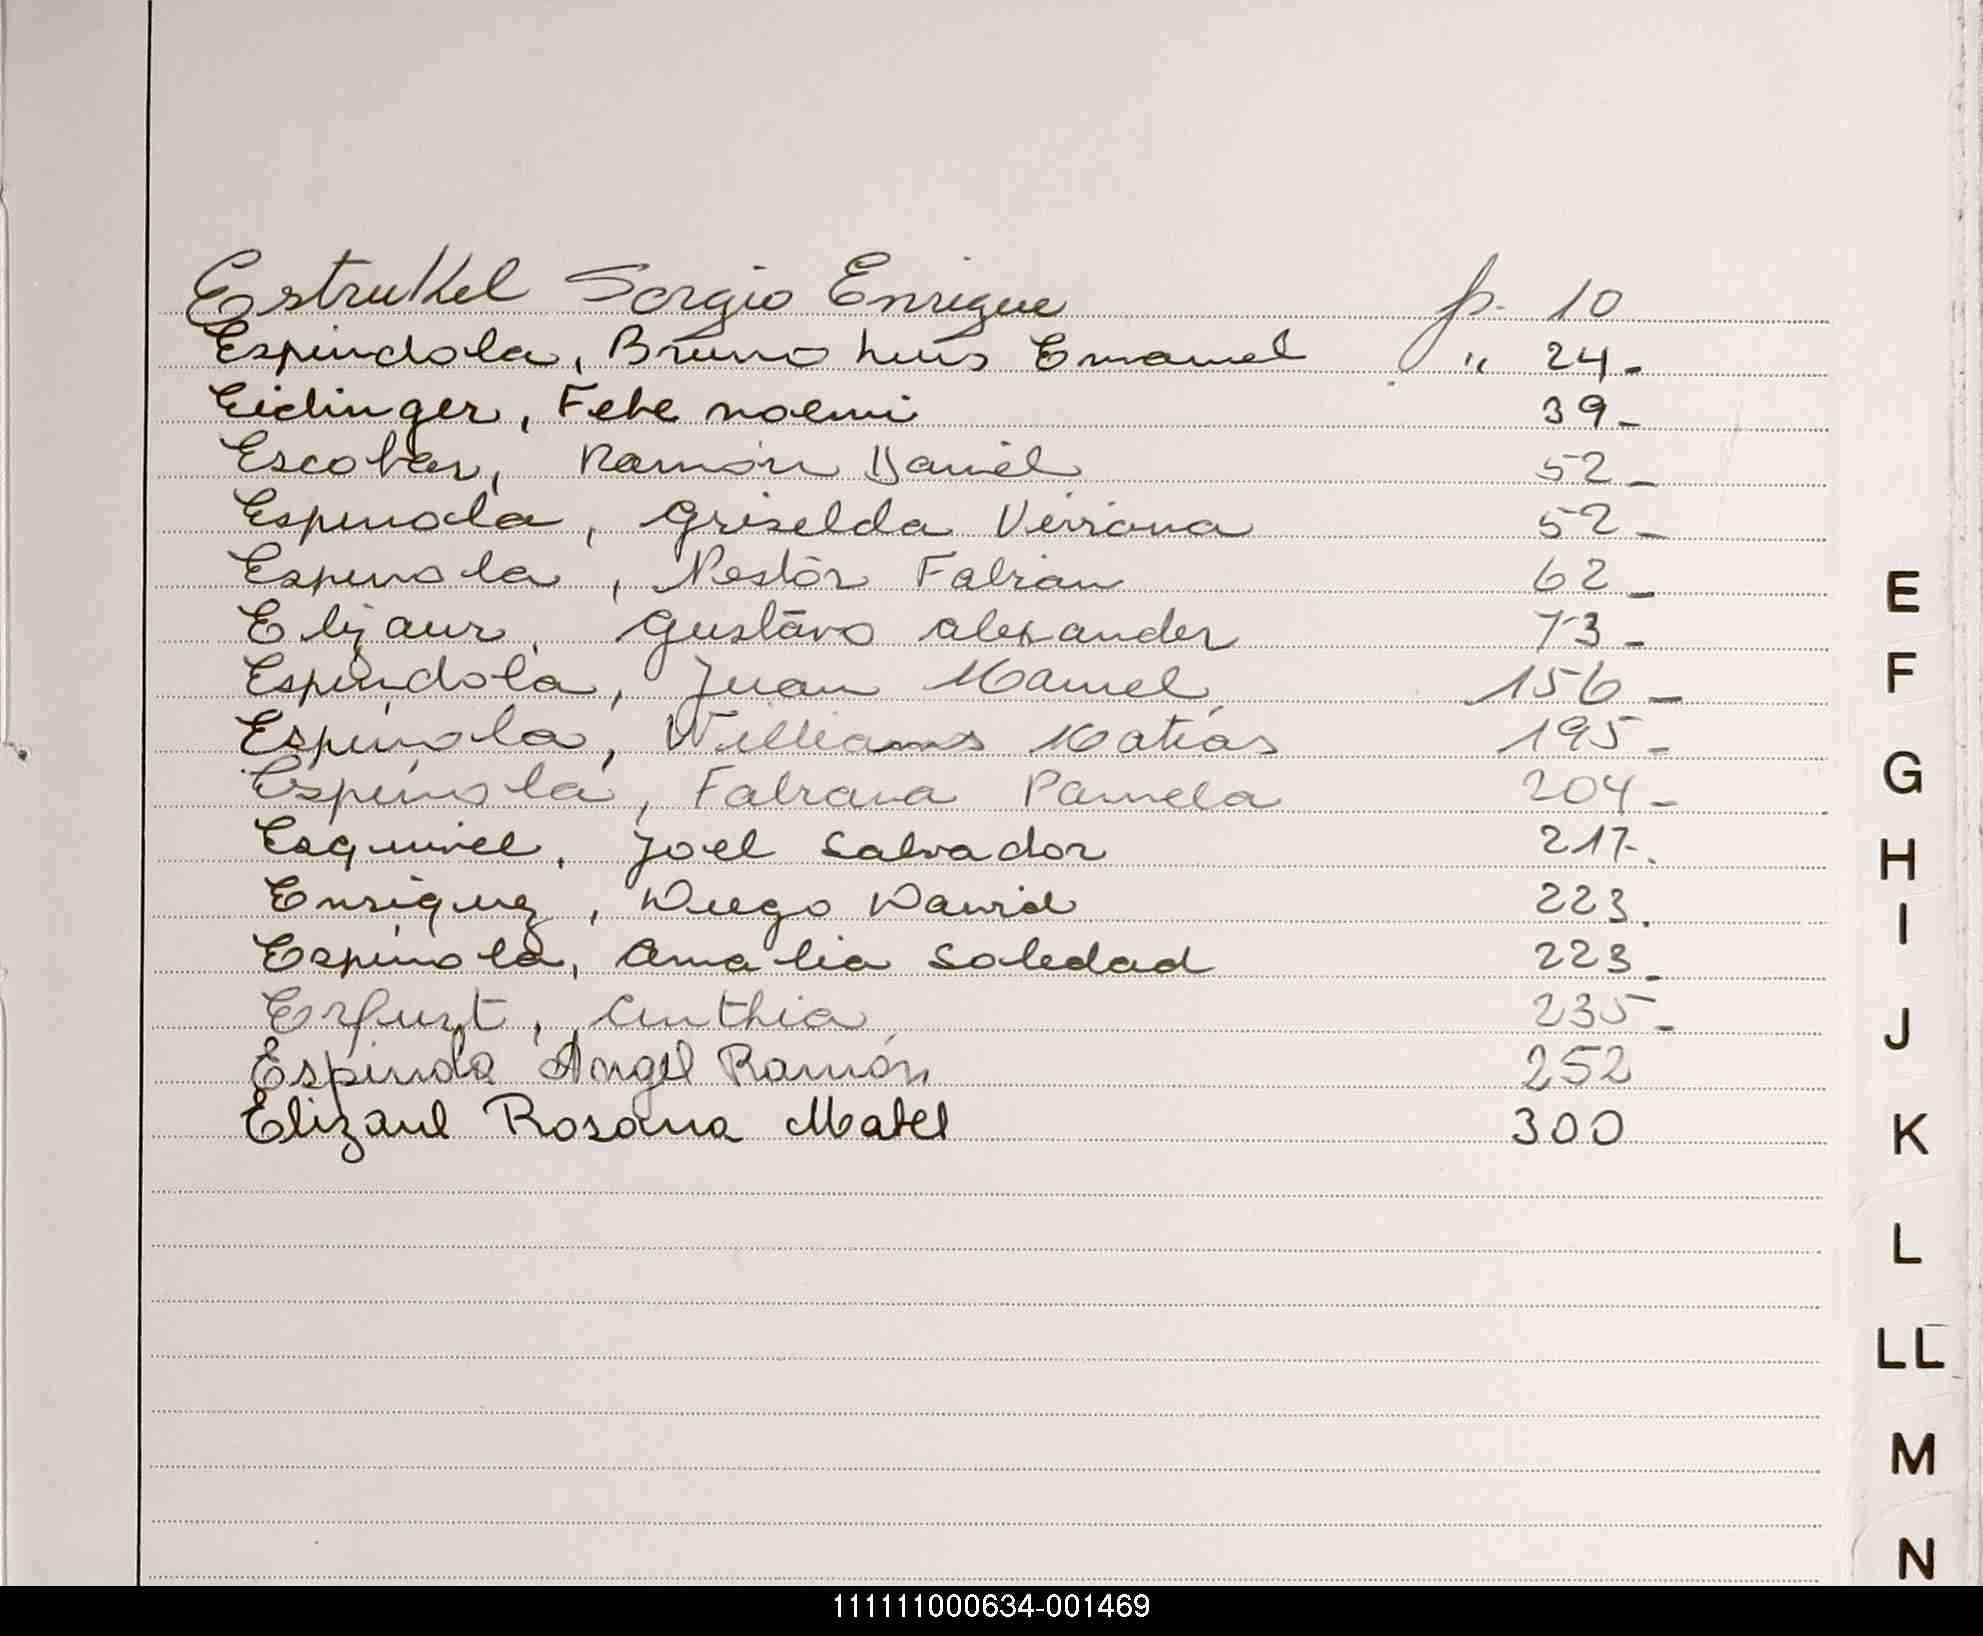 Estrukel Sergio Enrique p. 10
Espindola, Bruno Luis Emanuel " 24-
Eidinger, Febe noemi 39-
Escobar, Ramón Daniel 52-
Espinola, Griselda Viviana 52-
Espinola, Nestor Fabian 62-
Elizaur, Gustavo alexander 73-
Espindola, Juan Manuel 156-
Espinola, Williams Matias 195-
Espinola, Fabiana Pamela 204-
Esquivel, Joel Salvador 217-.
Enriquez, Diego David 223.
Espinola, Amalia Soledad 223-
Erfurt, Cinthia 235-
Espindola Angel Ramón 252
Elizaul Rosana Mabel 300
E
F
G
H
I
J
K
L
LL
M
N
111111000634-001469